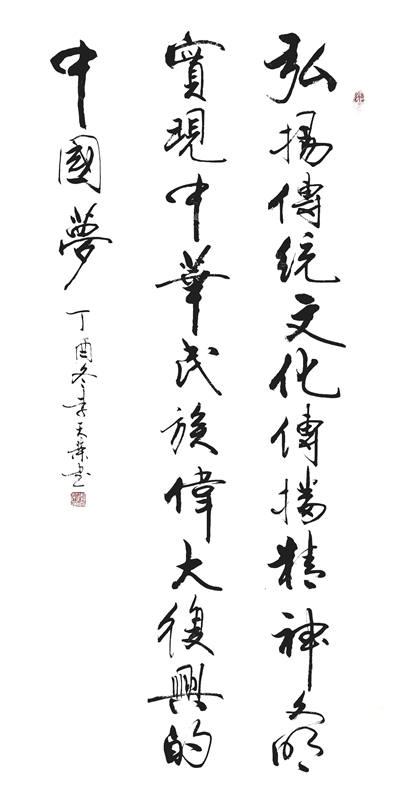 弘揚傳統文化傳播精神文明
實現中華民族偉大復興的
中國夢
丁酉冬李天葉書